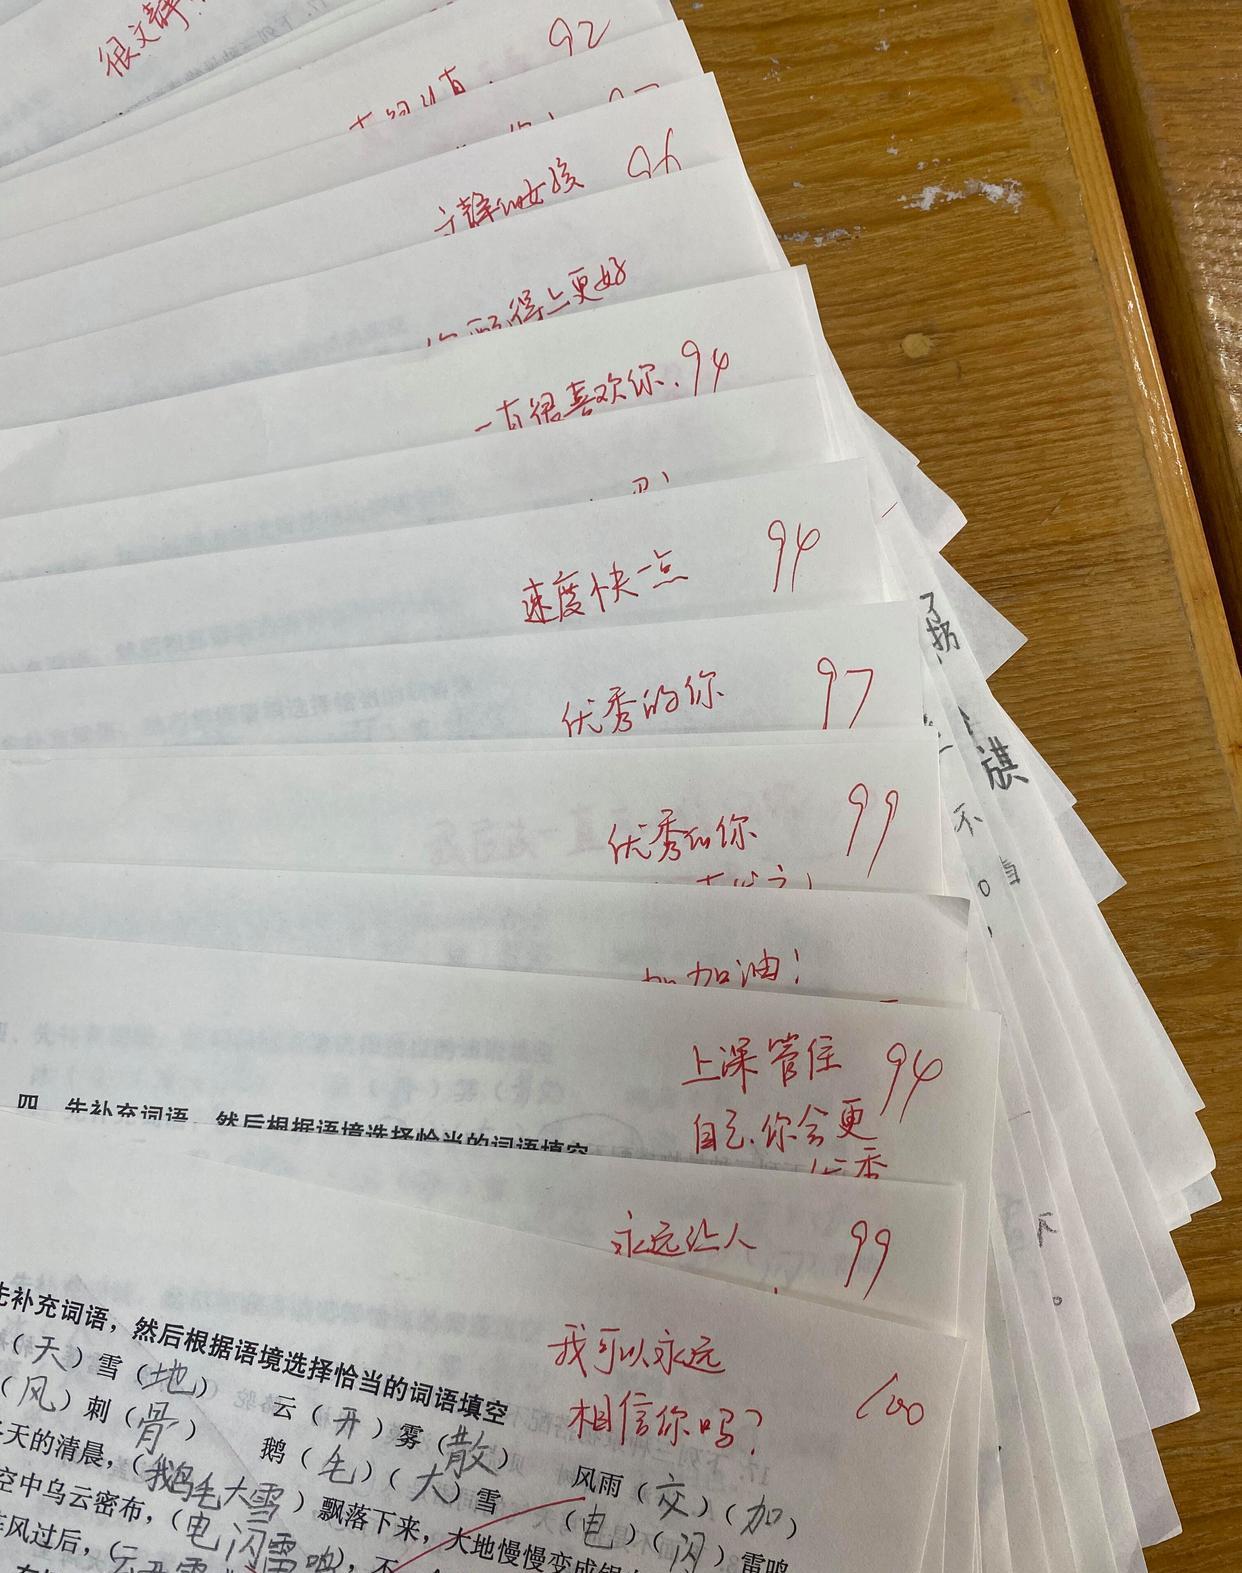 很文静
92
女孩 96
得上更好
一直很喜欢你.94
速度快一点 94
优秀的你 97
优秀的你 99
加油!
上课管住 94
自己.你会更
优秀
四、先补充词语，然后根据语境选择恰当的词语填空
永远让人 99
我可以永远
相信你吗? 100
先补充词语，然后根据语境选择恰当的词语填空
（天）雪（地） 云（开）雾（散） 风雨（交）（加）
（风）刺（骨） 鹅（毛）（大）雪 （电）（闪）雷鸣
冬天的清晨，（鹅毛大雪）飘落下来，大地慢慢变成银
空中乌云密布，（电闪雷鸣），不
阵风过后，（云开雾
旗
不
下